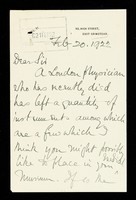 Feb. 20. 1922
Dear Sir
A London physician
who has recently died
has left a quantity of
instruments among which
are a few which I
think you might possibly
like to place in your Medical
Museum. If so